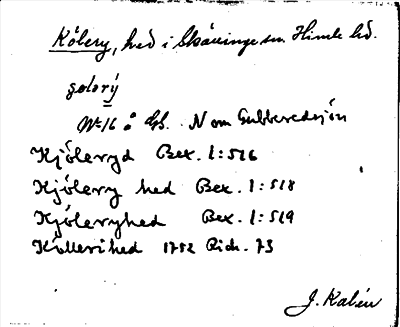 Kölery, hed i Skäninge sn. Himle hd.
golərý
W 16 å Gb. N om Gubbaredsjön
Kjöleryd Bex. 1:516
Kjölery hed Bex. 1:518
Kjöleryhed Bex. 1:519
Kölleri hed 1752 Rich. 73
J. Kalén